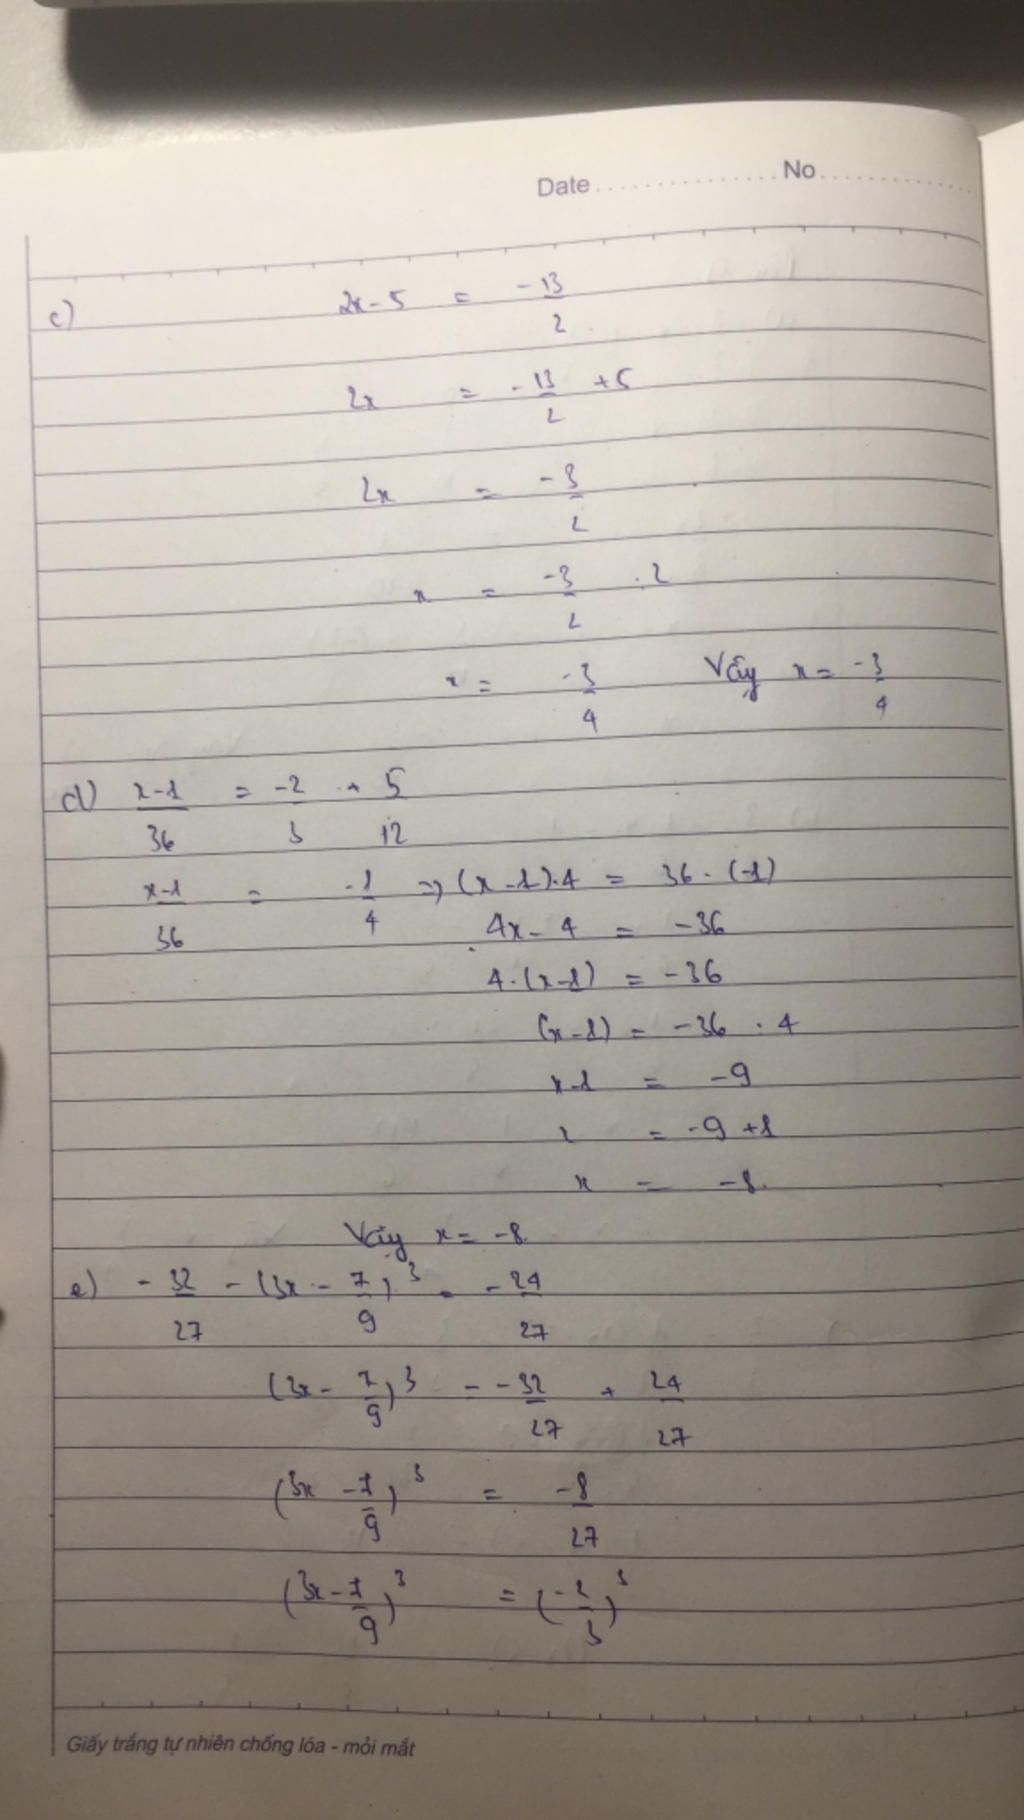 Date.................No...............
c) 2x - 5 = -13/2
2x = -13/2 + 5
2x = -3/2
x = -3/2 . 2
x = -3/4 Vậy x = -3/4
d) x-1/36 = -2/3 + 5/12
x-1/36 = -1/4 => (x-1).4 = 36.(-1)
4x - 4 = -36
4.(x-1) = -36
(x-1) = -36 . 4
x-1 = -9
x = -9 + 1
x = -8.
Vậy x = -8.
e) -32/27 - (3x - 7/9)³ = -24/27
(3x - 7/9)³ = -32/27 + 24/27
(3x - 7/9)³ = -8/27
(3x - 7/9)³ = (-2/3)³
Giấy trắng tự nhiên chống lóa - mỏi mắt